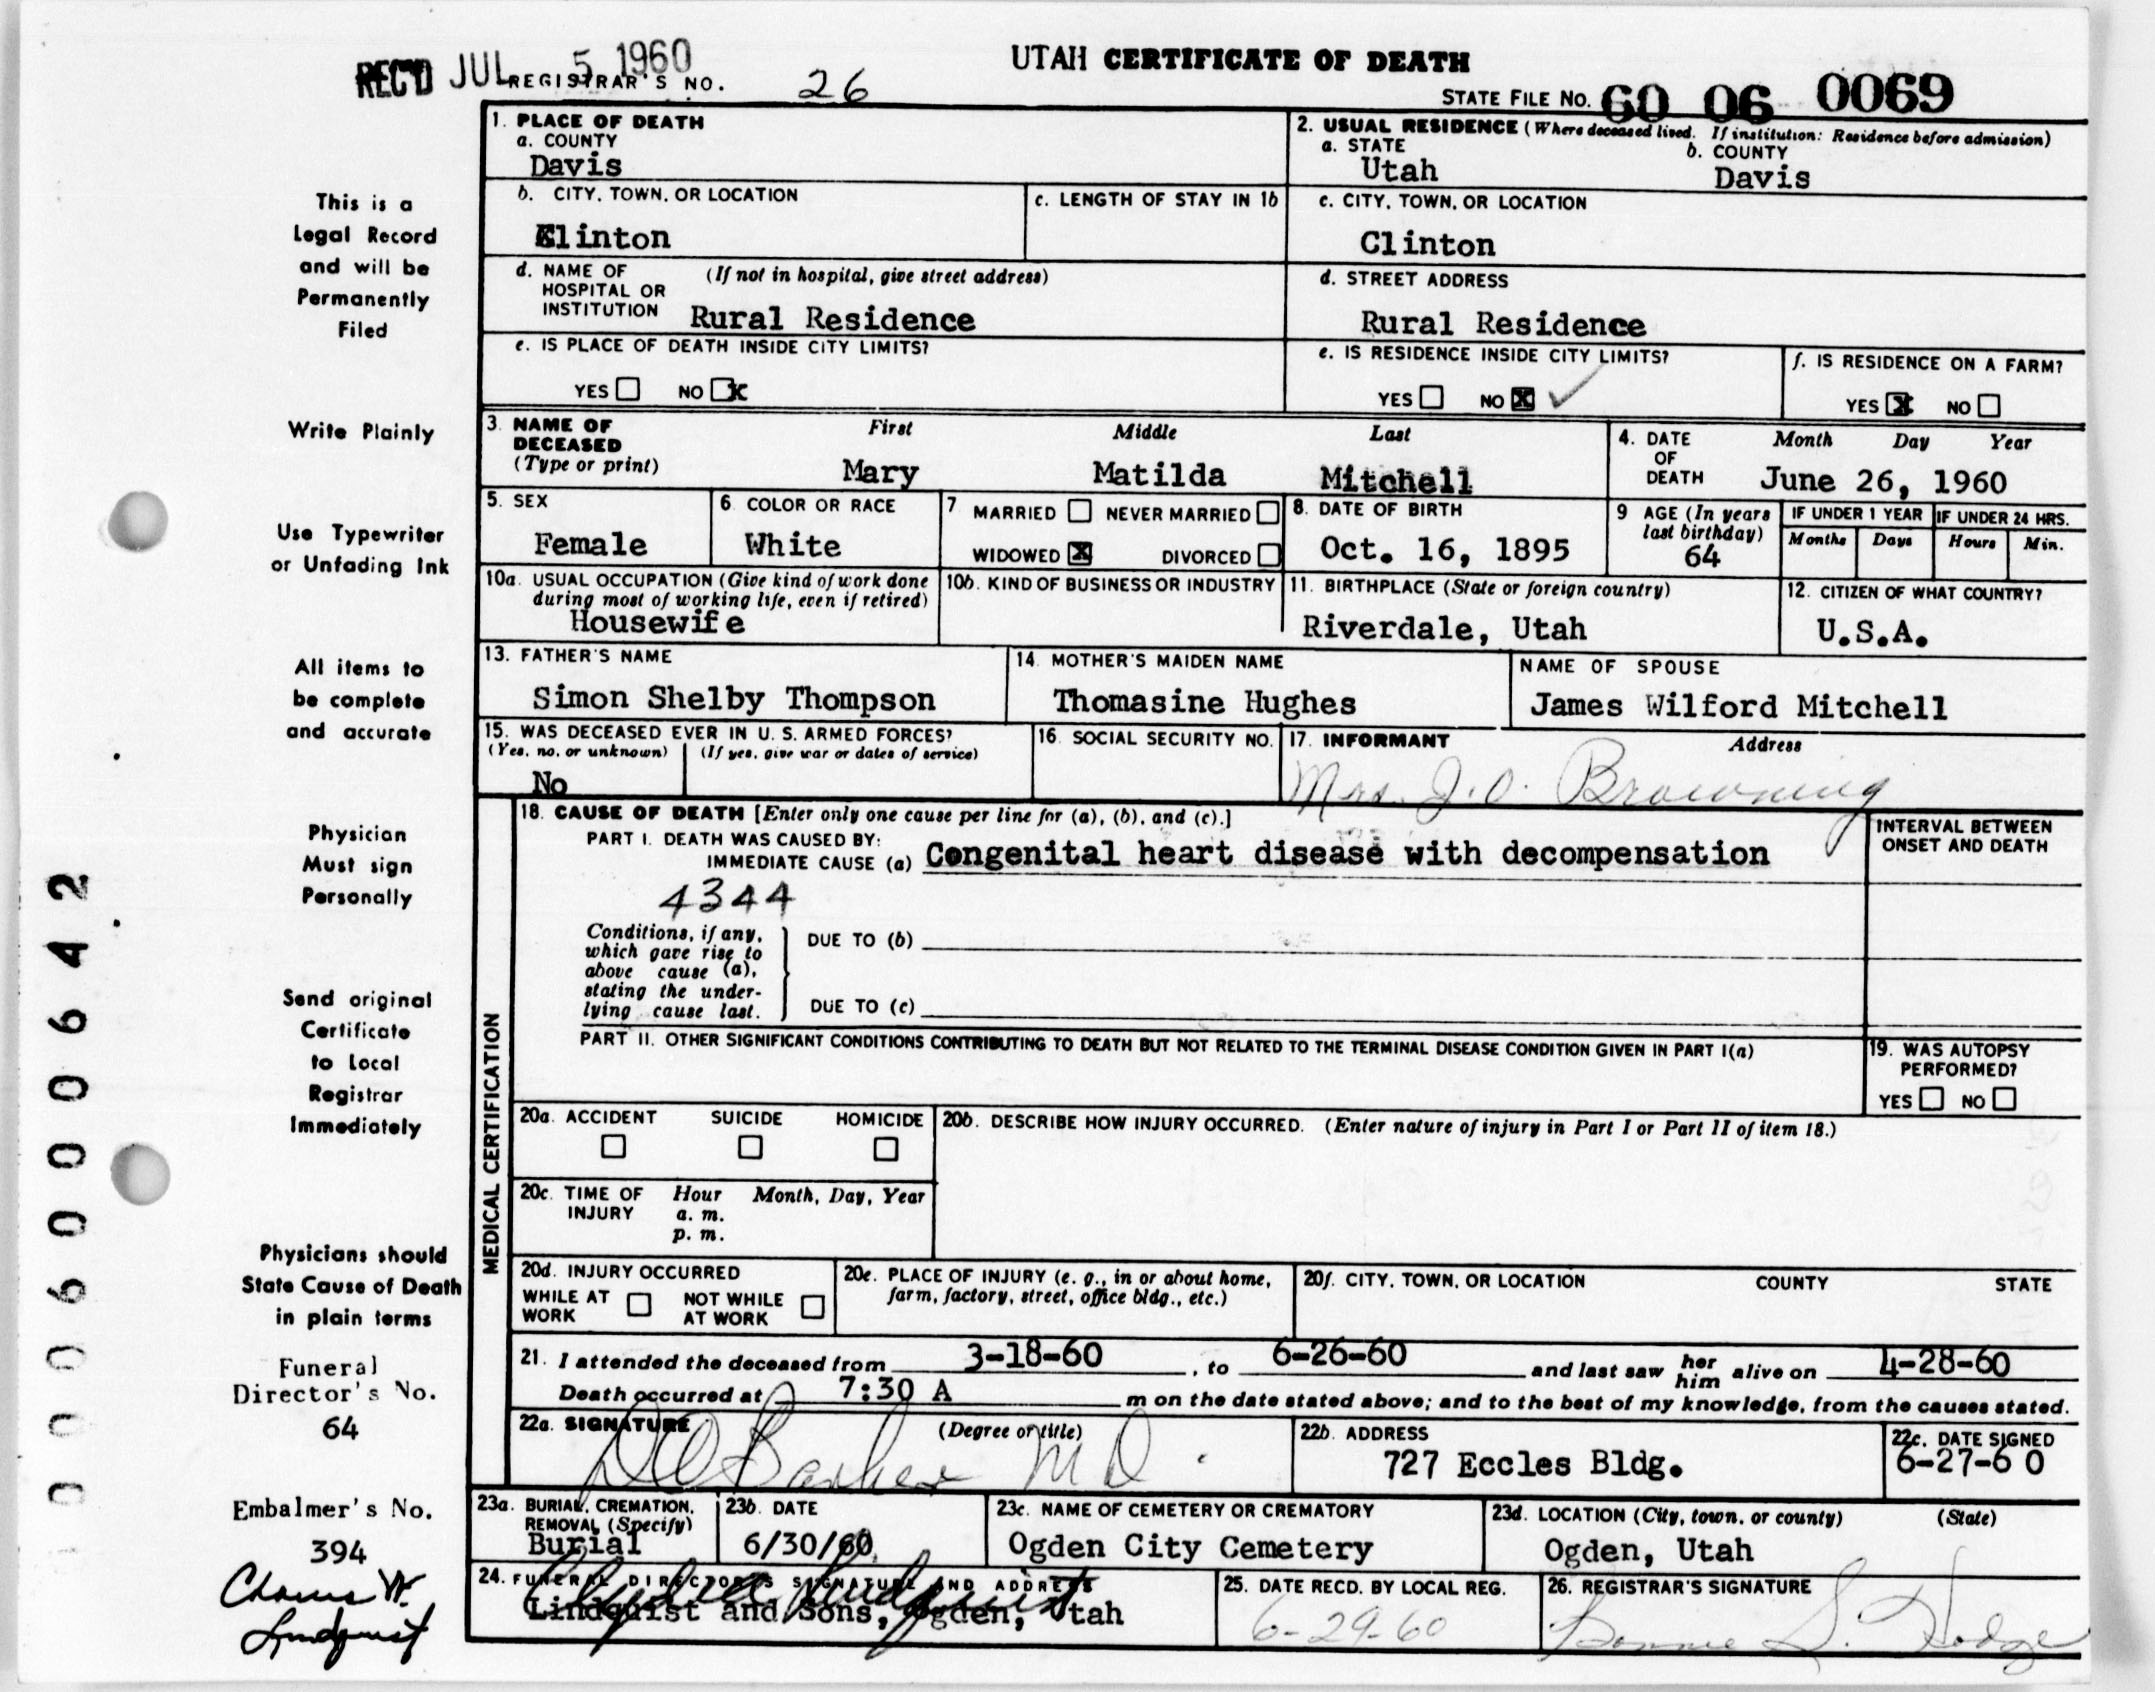 REC'D JUL 5 1960
REGISTRAR'S NO. 26
UTAH CERTIFICATE OF DEATH
STATE FILE NO. 60 06 0069
1. PLACE OF DEATH
a. COUNTY
Davis
2. USUAL RESIDENCE (Where deceased lived. If institution: Residence before admission)
a. STATE
Utah
b. COUNTY
Davis
b. CITY, TOWN, OR LOCATION
Clinton
c. LENGTH OF STAY IN 1b
c. CITY, TOWN, OR LOCATION
Clinton
d. NAME OF HOSPITAL OR INSTITUTION
(If not in hospital, give street address)
Rural Residence
d. STREET ADDRESS
Rural Residence
e. IS PLACE OF DEATH INSIDE CITY LIMITS?
YES NO X
e. IS RESIDENCE INSIDE CITY LIMITS?
YES NO X
f. IS RESIDENCE ON A FARM?
YES X NO
3. NAME OF DECEASED (Type or print)
First Middle Last
Mary Matilda Mitchell
4. DATE OF DEATH
Month Day Year
June 26, 1960
5. SEX
Female
6. COLOR OR RACE
White
7 MARRIED NEVER MARRIED
WIDOWED X DIVORCED
8. DATE OF BIRTH
Oct. 16, 1895
9 AGE (In years last birthday)
64
IF UNDER 1 YEAR
Months Days
IF UNDER 24 HRS.
Hours Min.
10a. USUAL OCCUPATION (Give kind of work done during most of working life, even if retired)
Housewife
10b. KIND OF BUSINESS OR INDUSTRY
11. BIRTHPLACE (State or foreign country)
Riverdale, Utah
12. CITIZEN OF WHAT COUNTRY?
U.S.A.
13. FATHER'S NAME
Simon Shelby Thompson
14. MOTHER'S MAIDEN NAME
Thomasine Hughes
NAME OF SPOUSE
James Wilford Mitchell
15. WAS DECEASED EVER IN U. S. ARMED FORCES?
(Yes, no, or unknown) (If yes, give war or dates of service)
No
16. SOCIAL SECURITY NO.
17. INFORMANT Address
Mrs. J. O. Browning
MEDICAL CERTIFICATION
18. CAUSE OF DEATH [Enter only one cause per line for (a), (b), and (c).]
PART I. DEATH WAS CAUSED BY:
IMMEDIATE CAUSE (a) Congenital heart disease with decompensation
4344
INTERVAL BETWEEN ONSET AND DEATH
Conditions, if any, which gave rise to above cause (a), stating the under-lying cause last.
DUE TO (b)
DUE TO (c)
PART II. OTHER SIGNIFICANT CONDITIONS CONTRIBUTING TO DEATH BUT NOT RELATED TO THE TERMINAL DISEASE CONDITION GIVEN IN PART I(a)
19. WAS AUTOPSY PERFORMED?
YES NO
20a. ACCIDENT SUICIDE HOMICIDE
20b. DESCRIBE HOW INJURY OCCURRED. (Enter nature of injury in Part I or Part II of item 18.)
20c. TIME OF INJURY
Hour Month, Day, Year
a. m.
p. m.
20d. INJURY OCCURRED
WHILE AT WORK NOT WHILE AT WORK
20e. PLACE OF INJURY (e. g., in or about home, farm, factory, street, office bldg., etc.)
20f. CITY, TOWN, OR LOCATION COUNTY STATE
21. I attended the deceased from 3-18-60, to 6-26-60 and last saw her him alive on 4-28-60
Death occurred at 7:30 A m on the date stated above; and to the best of my knowledge, from the causes stated.
22a. SIGNATURE (Degree or title)
D O Barker M D
22b. ADDRESS
727 Eccles Bldg.
22c. DATE SIGNED
6-27-60
23a. BURIAL, CREMATION, REMOVAL (Specify)
Burial
23b. DATE
6/30/60
23c. NAME OF CEMETERY OR CREMATORY
Ogden City Cemetery
23d. LOCATION (City, town, or county) (State)
Ogden, Utah
24. FUNERAL DIRECTOR'S SIGNATURE AND ADDRESS
Lindquist and Sons, Ogden, Utah
25. DATE RECD. BY LOCAL REG.
6-29-60
26. REGISTRAR'S SIGNATURE
Bonnie S. Hodge
This is a
Legal Record
and will be
Permanently
Filed
Write Plainly
Use Typewriter
or Unfading Ink
All items to
be complete
and accurate
Physician
Must sign
Personally
Send original
Certificate
to Local
Registrar
Immediately
Physicians should
State Cause of Death
in plain terms
Funeral
Director's No.
64
Embalmer's No.
394
Lindquist
0006000642